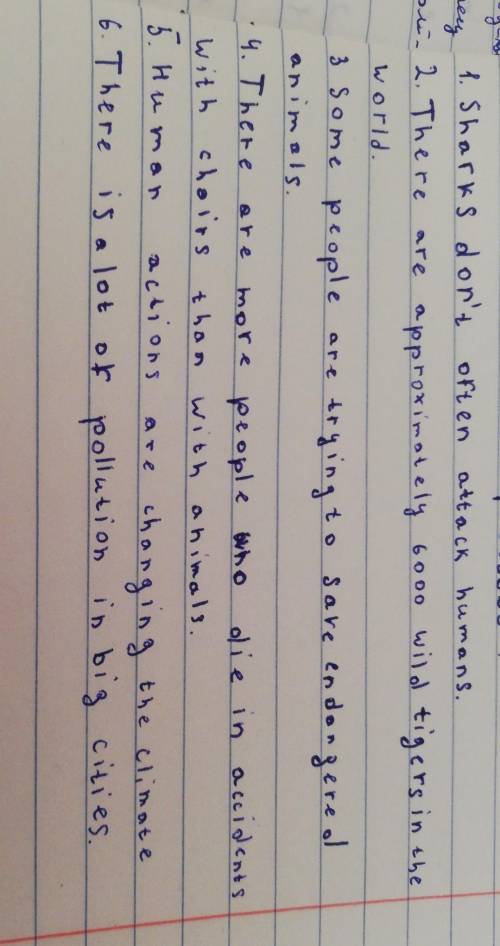 1. Sharks don't often attack humans.
2. There are approximately 6000 wild tigers in the
world.
3 Some people are trying to save endangered
animals.
4. There are more people who die in accidents
with chairs than with animals.
5. Human actions are changing the climate
6. There is a lot of pollution in big cities.